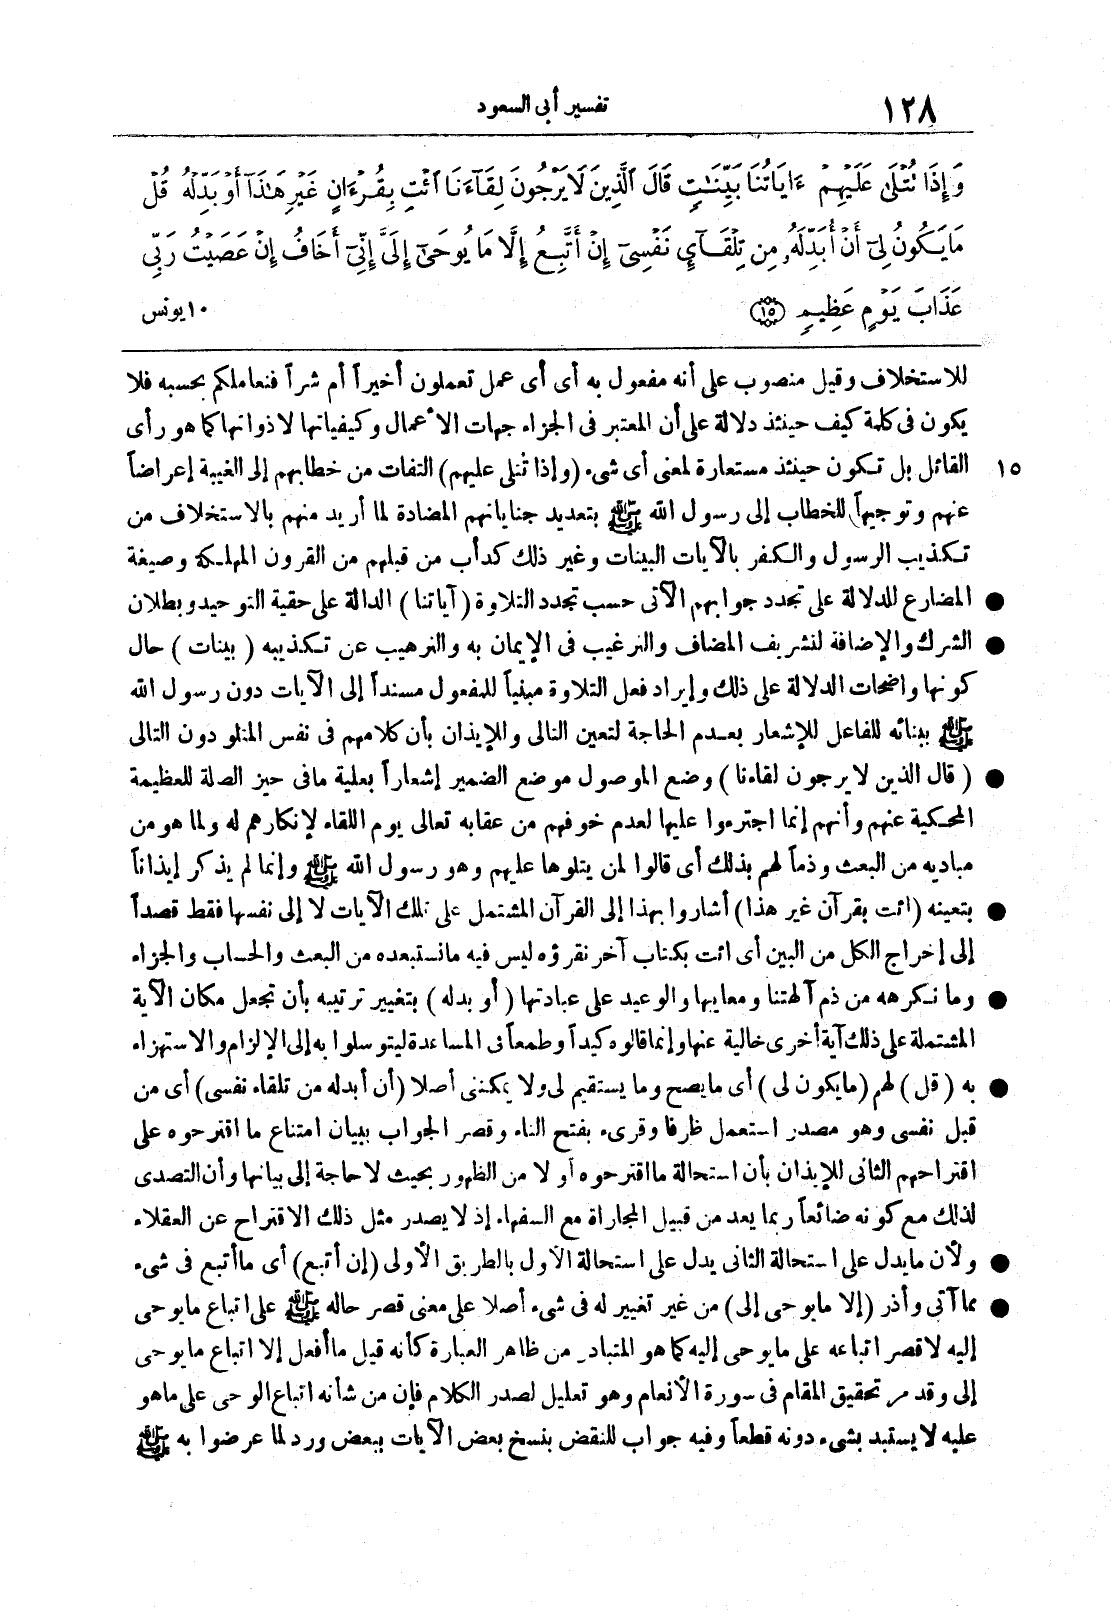 ١٢٨ تفسير أبى السعود
وَإِذَا تُتْلَىٰ عَلَيْهِمْ ءَايَاتُنَا بَيِّنَـٰتٍ قَالَ ٱلَّذِينَ لَا يَرْجُونَ لِقَآءَنَا ٱئْتِ بِقُرْءَانٍ غَيْرِ هَـٰذَآ أَوْ بَدِّلْهُ قُلْ
مَا يَكُونُ لِىٓ أَنْ أُبَدِّلَهُۥ مِن تِلْقَآئِ نَفْسِىٓ إِنْ أَتَّبِعُ إِلَّا مَا يُوحَىٰٓ إِلَىَّ إِنِّىٓ أَخَافُ إِنْ عَصَيْتُ رَبِّى
عَذَابَ يَوْمٍ عَظِيمٍ (١٥) ١٠ يونس
للاستخلاف وقيل منصوب على أنه مفعول به أى أى عمل تعملون أخيراً أم شراً فنعاملكم بحسبه فلا
يكون فى كلمة كيف حينئذ دلالة على أن المعتبر فى الجزاء جهات الأعمال وكيفياتها لا ذواتها كما هو رأى
١٥ القائل بل تكون حينئذ مستعارة لمعنى أى شىء (وإذا تُتلى عليهم) التفات من خطابهم إلى الغيبة إعراضاً
عنهم وتوجيهاً للخطاب إلى رسول الله ﷺ بتعديد جناياتهم المضادة لما أريد منهم بالاستخلاف من
تكذيب الرسول والكفر بالآيات البينات وغير ذلك كدأب من قبلهم من القرون المهلكة وصيغة
● المضارع للدلالة على تجدد جوابهم الآتى حسب تجدد التلاوة (آياتنا) الدالة على حقية التوحيد وبطلان
● الشرك والإضافة لتشريف المضاف والترغيب فى الإيمان به والترهيب عن تكذيبه (بينات) حال
كونها واضحات الدلالة على ذلك وإيراد فعل التلاوة مبنياً للمفعول مسنداً إلى الآيات دون رسول الله
ﷺ ببنائه للفاعل للإشعار بعدم الحاجة لتعين التالى وللإيذان بأن كلامهم فى نفس المتلو دون التالى
● (قال الذين لا يرجون لقاءنا) وضع الموصول موضع الضمير إشعاراً بعلية ما فى حيز الصلة للعظيمة
المحكية عنهم وأنهم إنما اجترءوا عليها لعدم خوفهم من عقابه تعالى يوم اللقاء لإنكارهم له ولما هو من
مباديه من البعث وذماً لهم بذلك أى قالوا لمن يتلوها عليهم وهو رسول الله ﷺ وإنما لم يذكر إيذاناً
● بتعينه (ائت بقرآن غير هذا) أشاروا بهذا إلى القرآن المشتمل على تلك الآيات لا إلى نفسها فقط قصداً
إلى إخراج الكل من البين أى ائت بكتاب آخر نقرؤه ليس فيه ما نستبعده من البعث والحساب والجزاء
● وما نكرهه من ذم آلهتنا ومعايبها والوعيد على عبادتها (أو بدله) بتغيير ترتيبه بأن تجعل مكان الآية
المشتملة على ذلك آية أخرى خالية عنها وإنما قالوه كيداً وطمعاً فى المساعدة ليتوسلوا به إلى الإلزام والاستهزاء
● به (قل) لهم (ما يكون لى) أى ما يصح وما يستقيم لى ولا يمكننى أصلا (أن أبدله من تلقاء نفسى) أى من
قبل نفسى وهو مصدر استعمل ظرفا وقرىء بفتح التاء وقصر الجواب ببيان امتناع ما اقترحوه على
اقتراحهم الثانى للإيذان بأن استحالة ما اقترحوه أو لا من الظهور بحيث لا حاجة إلى بيانها وأن التصدى
لذلك مع كونه ضائعاً ربما يعد من قبيل المجاراة مع السفهاء إذ لا يصدر مثل ذلك الاقتراح عن العقلاء
● ولأن ما يدل على استحالة الثانى يدل على استحالة الأول بالطريق الأولى (إن أتبع) أى ما أتبع فى شىء
● مما آتى وأذر (إلا ما يوحى إلى) من غير تغيير له فى شىء أصلا على معنى قصر حاله ﷺ على اتباع ما يوحى
إليه لا قصر اتباعه على ما يوحى إليه كما هو المتبادر من ظاهر العبارة كأنه قيل ما أفعل إلا اتباع ما يوحى
إلى وقد مر تحقيق المقام فى سورة الأنعام وهو تعليل لصدر الكلام فإن من شأنه اتباع الوحى على ما هو
عليه لا يستبد بشىء دونه قطعاً وفيه جواب للنقض بنسخ بعض الآيات ببعض ورد لما عرضوا به ﷺ